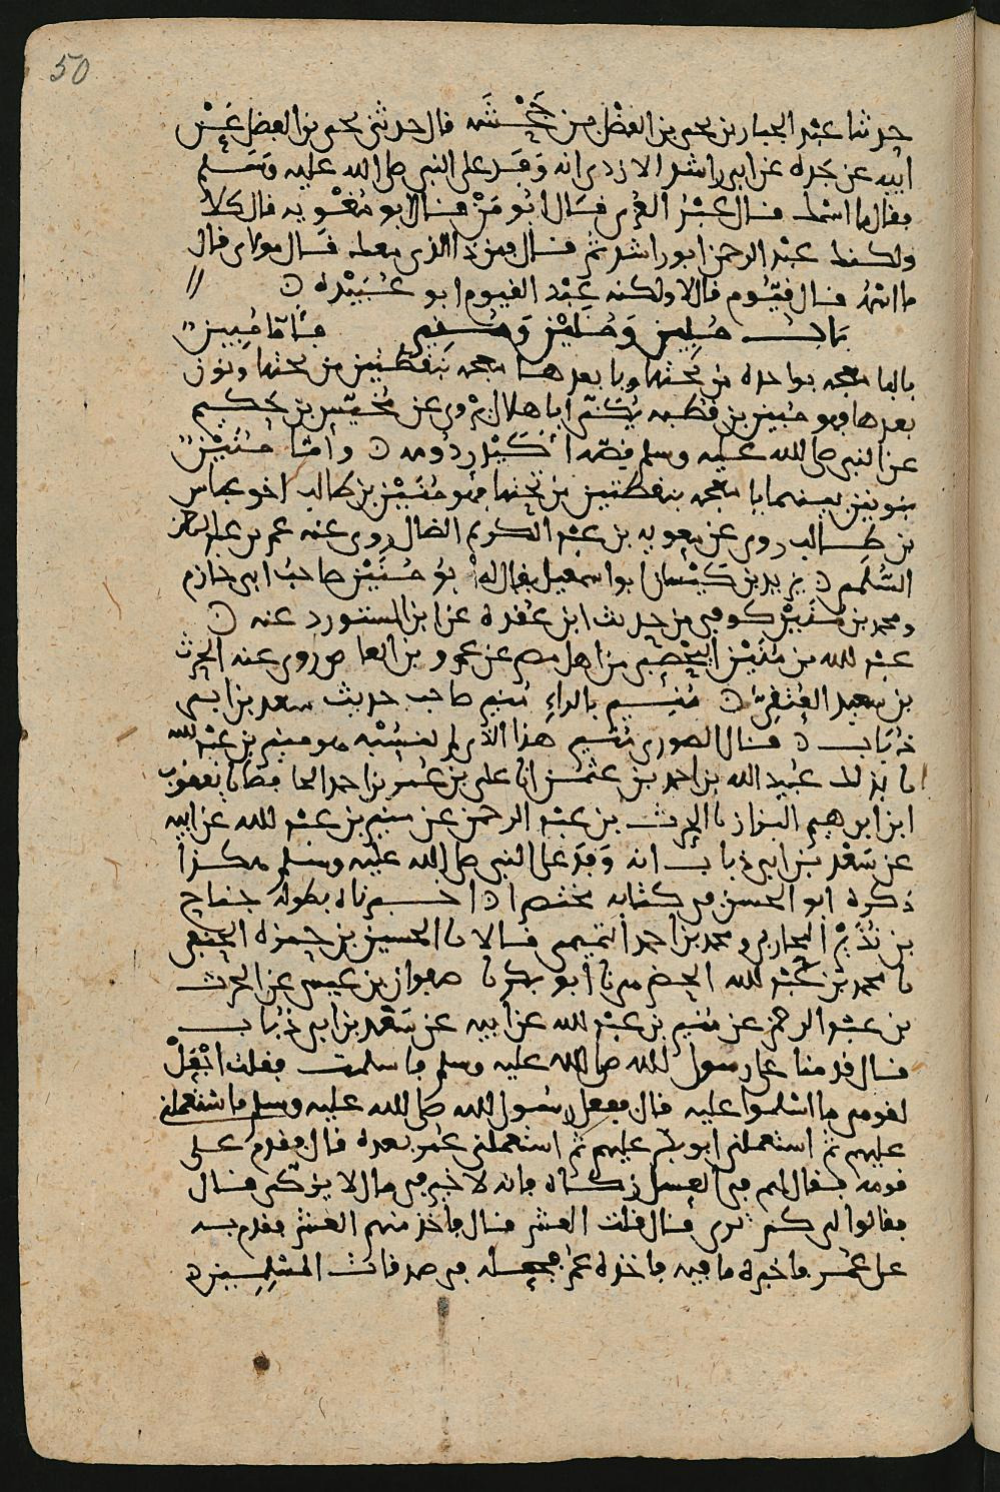 50
حدثنا عبد الجبار بن يحيى بن الفضل من خيشنه قال حدثني يحيى بن الفضل عن
ابيه عن جده عن ابي راشد الازدي انه وفد على النبي صلى الله عليه وسلم
فقال ما اسمك قال عبد العزى قال ابو من قال ابو مغويه قال كلا
ولكنك عبد الرحمن ابو راشد ثم قال فمن ذا الذي معك قال مولاي قال
ما اسمه قال قيوم قال لا ولكنه عبد القيوم ابو عبيدة
باب مبين ومنين ومنير فاما مبين
بالبا معجمة بواحدة من تحتها ويا بعدها معجمة بنقطتين من تحتها ونون
بعدها فهو مبين بن قطبه يكنى ابا هلال يروي عن مخيس بن حكيم
عن النبي صلى الله عليه وسلم قصه اكيدر دومه واما منين
بنونين بينهما يا معجمة بنقطتين من تحتها فهو منين بن طالب اخو عباس
بن طالب روى عن معويه بن عبد الكريم الضال روى عنه عمر بن
السلمي يزيد بن كيسان ابو اسمعيل يقال له ابو منين صاحب ابي حازم
ومحمد بن منين كوفي من حديث ابن عقده عن ابن المستورد عنه
عبد الله بن منين اليحصبي من اهل مصر عن عمرو بن العاص روى عنه الحرث
بن سعيد العتقي منير بالراء منير صاحب حديث سعد بن ابي
ذباب قال الصوري منير هذا الذي لم ينسبه هو منير بن عبد الله
نا بذلك عبيد الله بن احمد بن عثمن انا علي بن عمر بن احمد الحافظ نا يعقوب
ابن ابرهيم البزاز نا الحرث بن عبد الرحمن عن منير بن عبد الله عن ابيه
عن سعد بن ابي ذباب انه وفد على النبي صلى الله عليه وسلم هكذا
ذكره ابو الحسن في كتابه مختصرا اخبرناه بطوله جناح
بن نذير المحاربي ومحمد بن احمد التميمي قالا نا الحسين بن حمزة الخثعمي
نا محمد بن عبد الله الحضرمي نا ابو بكر نا صفوان بن عيسى عن الحرث
بن عبد الرحمن عن منير بن عبد الله عن ابيه عن سعد بن ابي ذباب
قال قدمنا على رسول الله صلى الله عليه وسلم فاسلمت فقلت اجعل
لقومي ما اسلموا عليه قال ففعل رسول الله صلى الله عليه وسلم فاستعملني
عليهم ثم استعملني ابو بكر عليهم ثم استعملني عمر بعده قال فقدم على
قومه فقال لهم في العسل زكاة فانه لا خير في مال لا يزكى قال
فقالوا لي كم ترى قال قلت العشر قال فاخذ منهم العشر فقدم به
على عمر فاخبره ما فيه فاخذه عمر فجعله في صدقات المسلمين